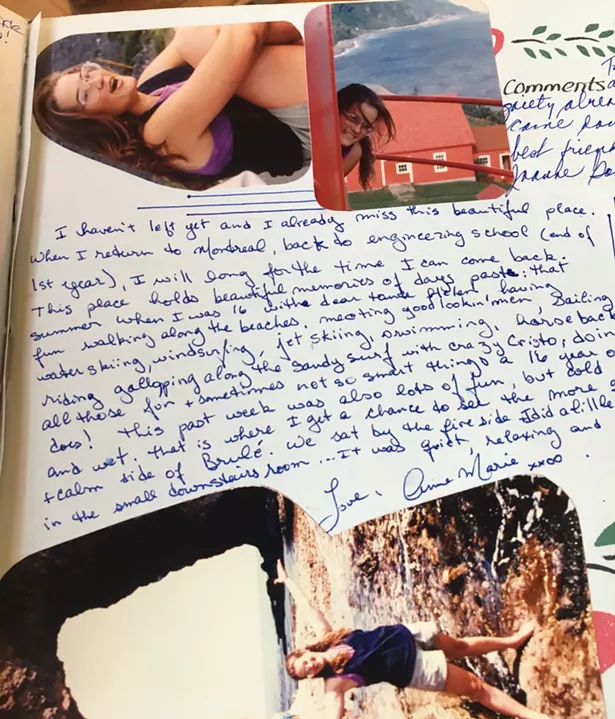 Comments
best friend
I haven't left yet and I already miss this beautiful place.
When I return to Montreal, back to engineering school (end of
1st year), I will long for the time I can come back.
This place holds beautiful memories of days past: that
summer when I was 16 with dear tante Helen having
fun walking along the beaches, meeting good lookin' men, Sailing
waterskiing, windsurfing, jet skiing, swimming, horseback
riding gallopping along the sandy surf with crazy Cristo, doin
all those fun + sometimes not so smart things a 16 year o
does! This past week was also lots of fun, but cold
and wet. That is where I get a chance to see the more
+ calm side of Brulé. We sat by the fire side I did a little
in the small downstairs room ... It was quiet, relaxing and
Love, Anne Marie xxoo